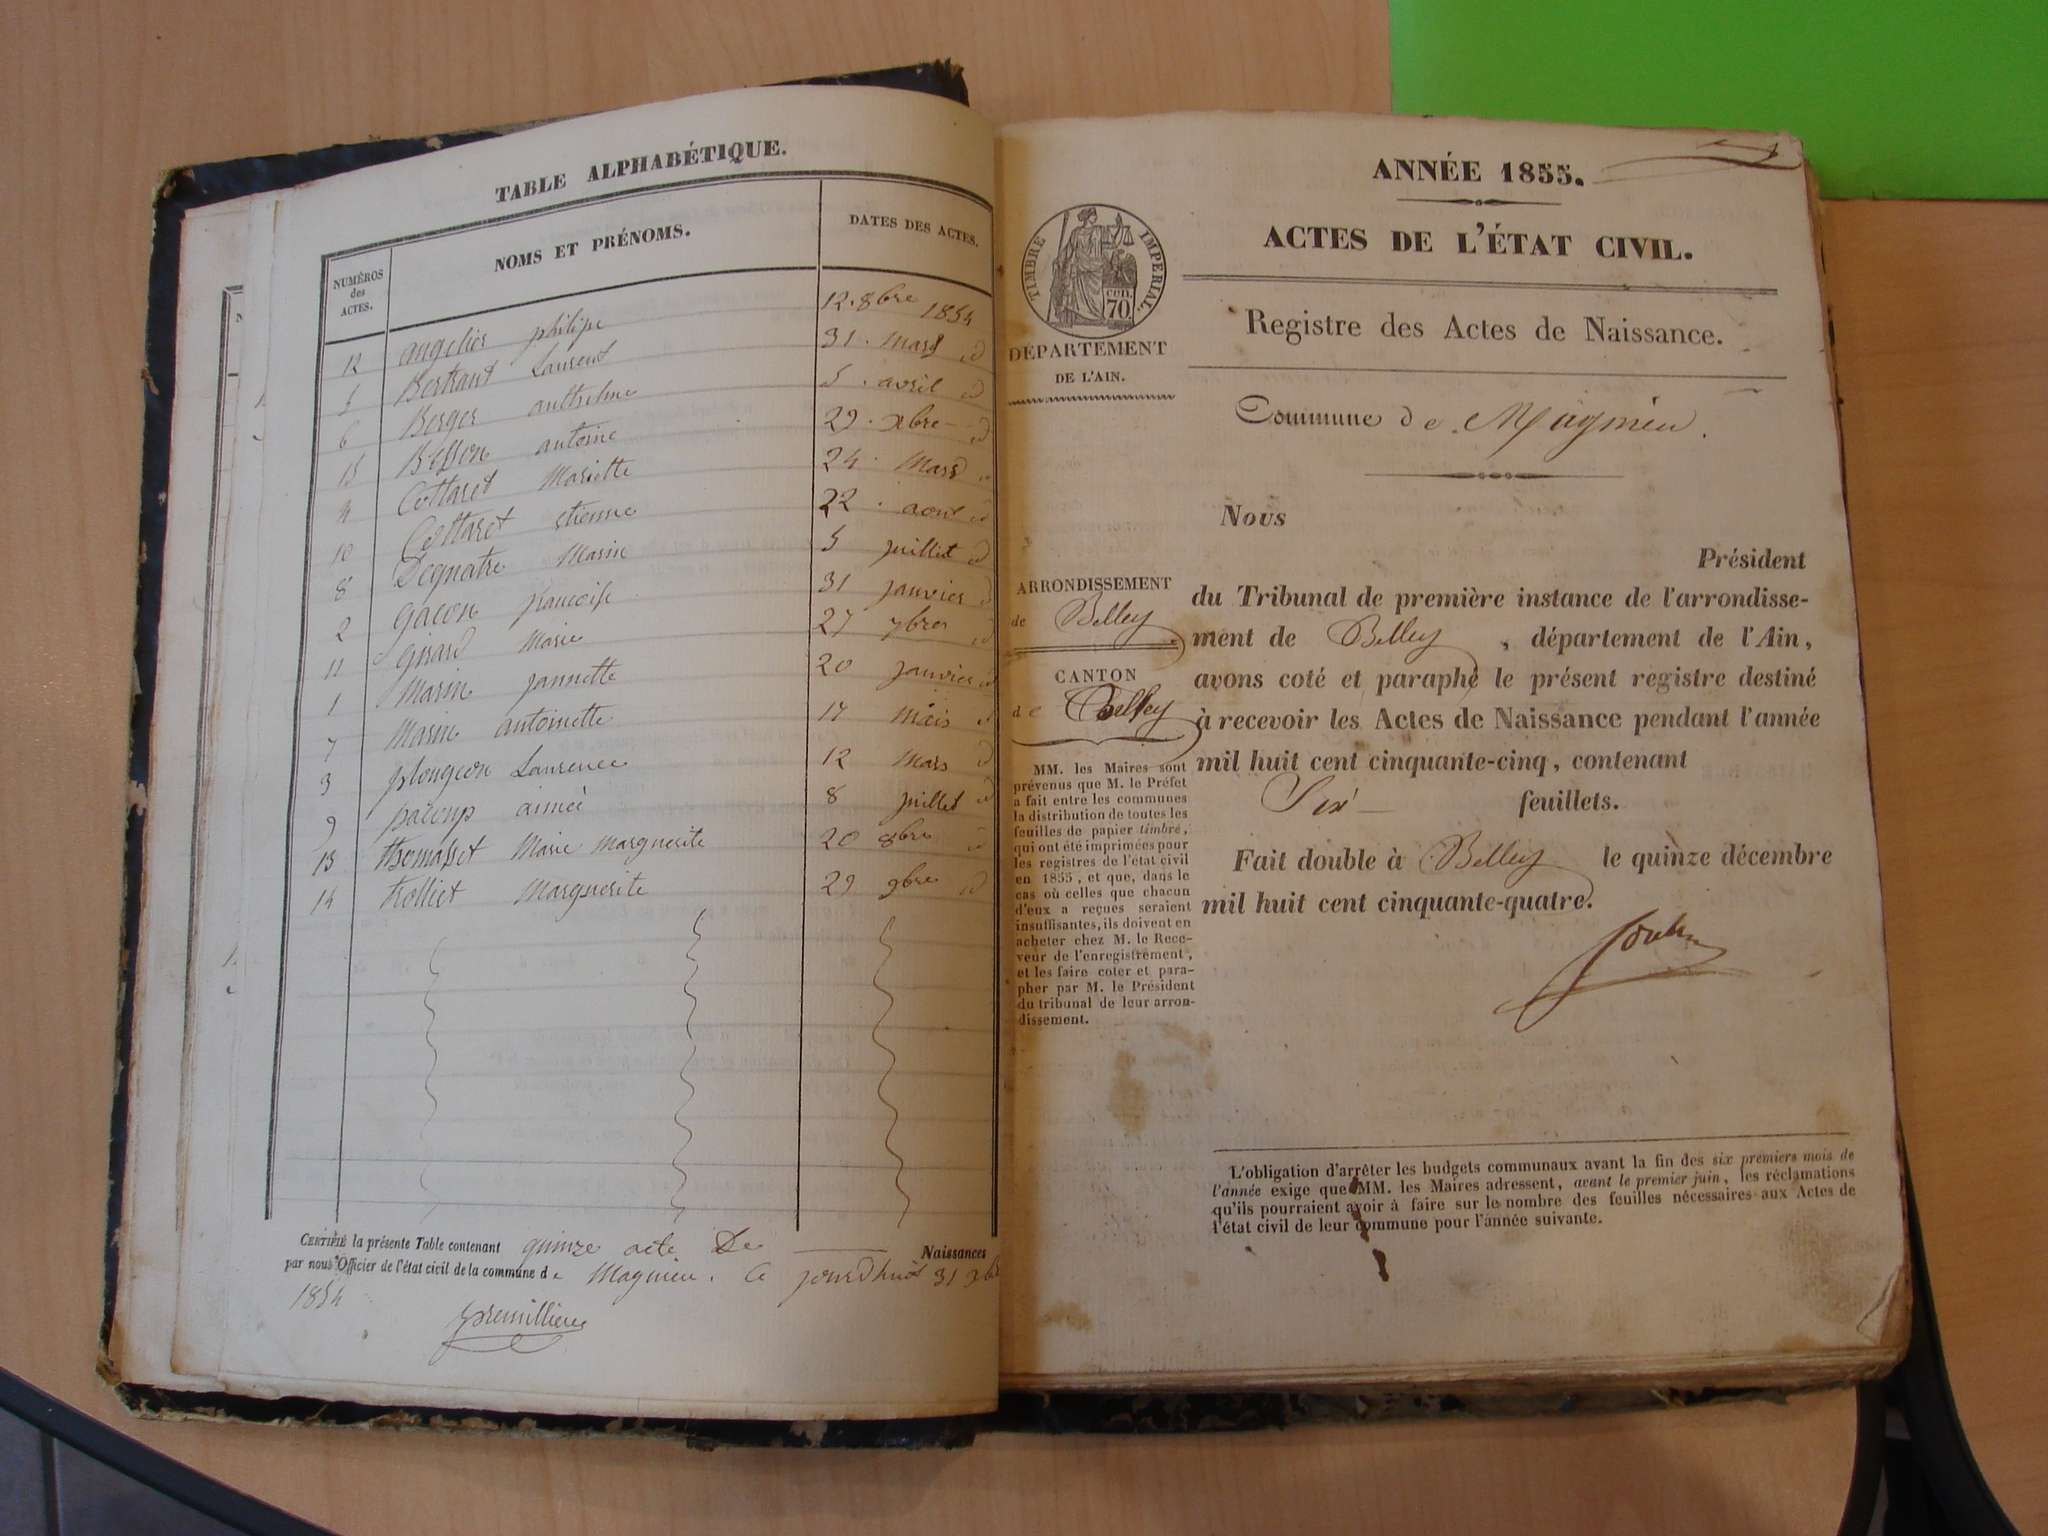 TABLE ALPHABÉTIQUE.
NUMÉROS des ACTES. NOMS ET PRÉNOMS. DATES DES ACTES.
12 angelier philipe 12. 8bre 1854
5 Bertrant Laurent 31. Mars id
6 Berger anthelme 5. avril id
15 Besson antoine 29. xbre id
4 Cottaret Mariette 24. Mars id
10 Cottaret etienne 22. aout id
8 Dequatre Marin 5 juillet id
2 gacon francoise 31 janvier id
11 girard Marie 27 7bre id
1 Marin jannette 20 janvier id
7 Marin antoinette 17 Mais id
3 plongeon Laurence 12 Mars id
9 aimée 8 juillet id
13 thomasset Marie Marguerite 20 8bre id
14 trolliet Marguerite 29 9bre id
CERTIFIÉ la présente Table contenant quinze acte De Naissances
par nous Officier de l'état civil de la commune de Magnieu. Ce jourdhuit 31 xbre
1854
ANNÉE 1855.
ACTES DE L'ÉTAT CIVIL.
TIMBRE IMPERIAL.
CEN. 70.
DÉPARTEMENT
DE L'AIN.
Registre des Actes de Naissance.
Commune de Magnieu.
ARRONDISSEMENT
de Belley
CANTON
de Belley
MM. les Maires sont
prévenus que M. le Préfet
a fait entre les communes
la distribution de toutes les
feuilles de papier timbré,
qui ont été imprimées pour
les registres de l'état civil
en 1855, et que, dans le
cas où celles que chacun
d'eux a reçues seraient
insuffisantes, ils doivent en
acheter chez M. le Rece-
veur de l'enregistrement,
et les faire coter et para-
pher par M. le Président
du tribunal de leur arron-
dissement.
Nous
Président
du Tribunal de première instance de l'arrondisse-
ment de Belley, département de l'Ain,
avons coté et paraphé le présent registre destiné
à recevoir les Actes de Naissance pendant l'année
mil huit cent cinquante-cinq, contenant
Six feuillets.
Fait double à Belley le quinze décembre
mil huit cent cinquante-quatre.
L'obligation d'arrêter les budgets communaux avant la fin des six premiers mois de
l'année exige que MM. les Maires adressent, avant le premier juin, les réclamations
qu'ils pourraient avoir à faire sur le nombre des feuilles nécessaires aux Actes de
l'état civil de leur commune pour l'année suivante.